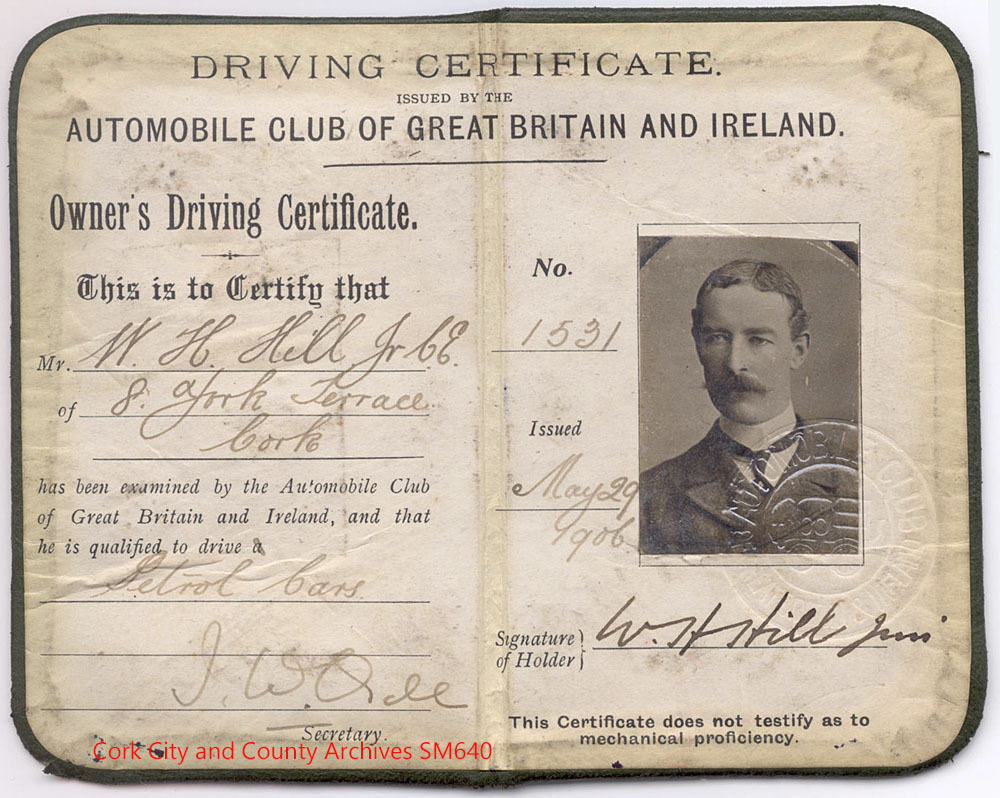 DRIVING CERTIFICATE.
ISSUED BY THE
AUTOMOBILE CLUB OF GREAT BRITAIN AND IRELAND.
Owner's Driving Certificate.
This is to Certify that
Mr. W. H. Hill Jr C.E.
of 8. York Terrace
Cork
has been examined by the Automobile Club
of Great Britain and Ireland, and that
he is qualified to drive a
Petrol Cars
Secretary.
No.
1531
Issued
May 29
1906
Signature
of Holder
W. H Hill Junr
This Certificate does not testify as to
mechanical proficiency.
Cork City and County Archives SM640